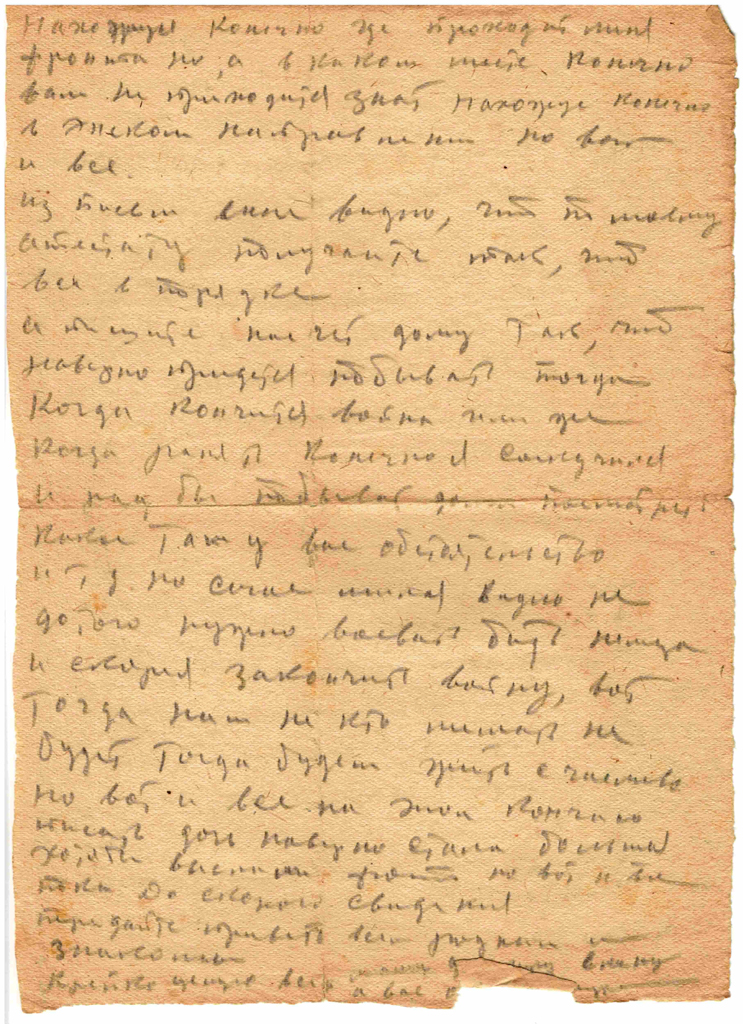 Нахожуся конечно где проходит линия
фронта но, а в каком месте конечно
вам не приходится знат нахожус конечно
в направлении но вот
и все.
из писем видно, что по моему
атестату получаите так, что
все в порядке
а пишите насчет дому так, что
наверно придется побывать тогда
когда кончится война или же
когда ранят конечно я соскучился
и как бы побывать дома посмотреть
какое там у вас обстоятельство
и т д но сичас милая видно не
дотого нужно воевать бить немца
и скорей закончить войну, вот
тогда нам не кто мешать не
будет тогда будем жить счасливо
но вот и все на этом кончаю
писать дочь наверно стала большая
хотябы выслали фото но вот и все
пока до скорого свидания
передайте привет всем родным и
знакомым
Крепко целую всех